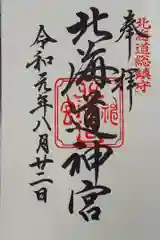 奉拝
北海道総鎮守
北海道神宮
令和元年八月廿二日